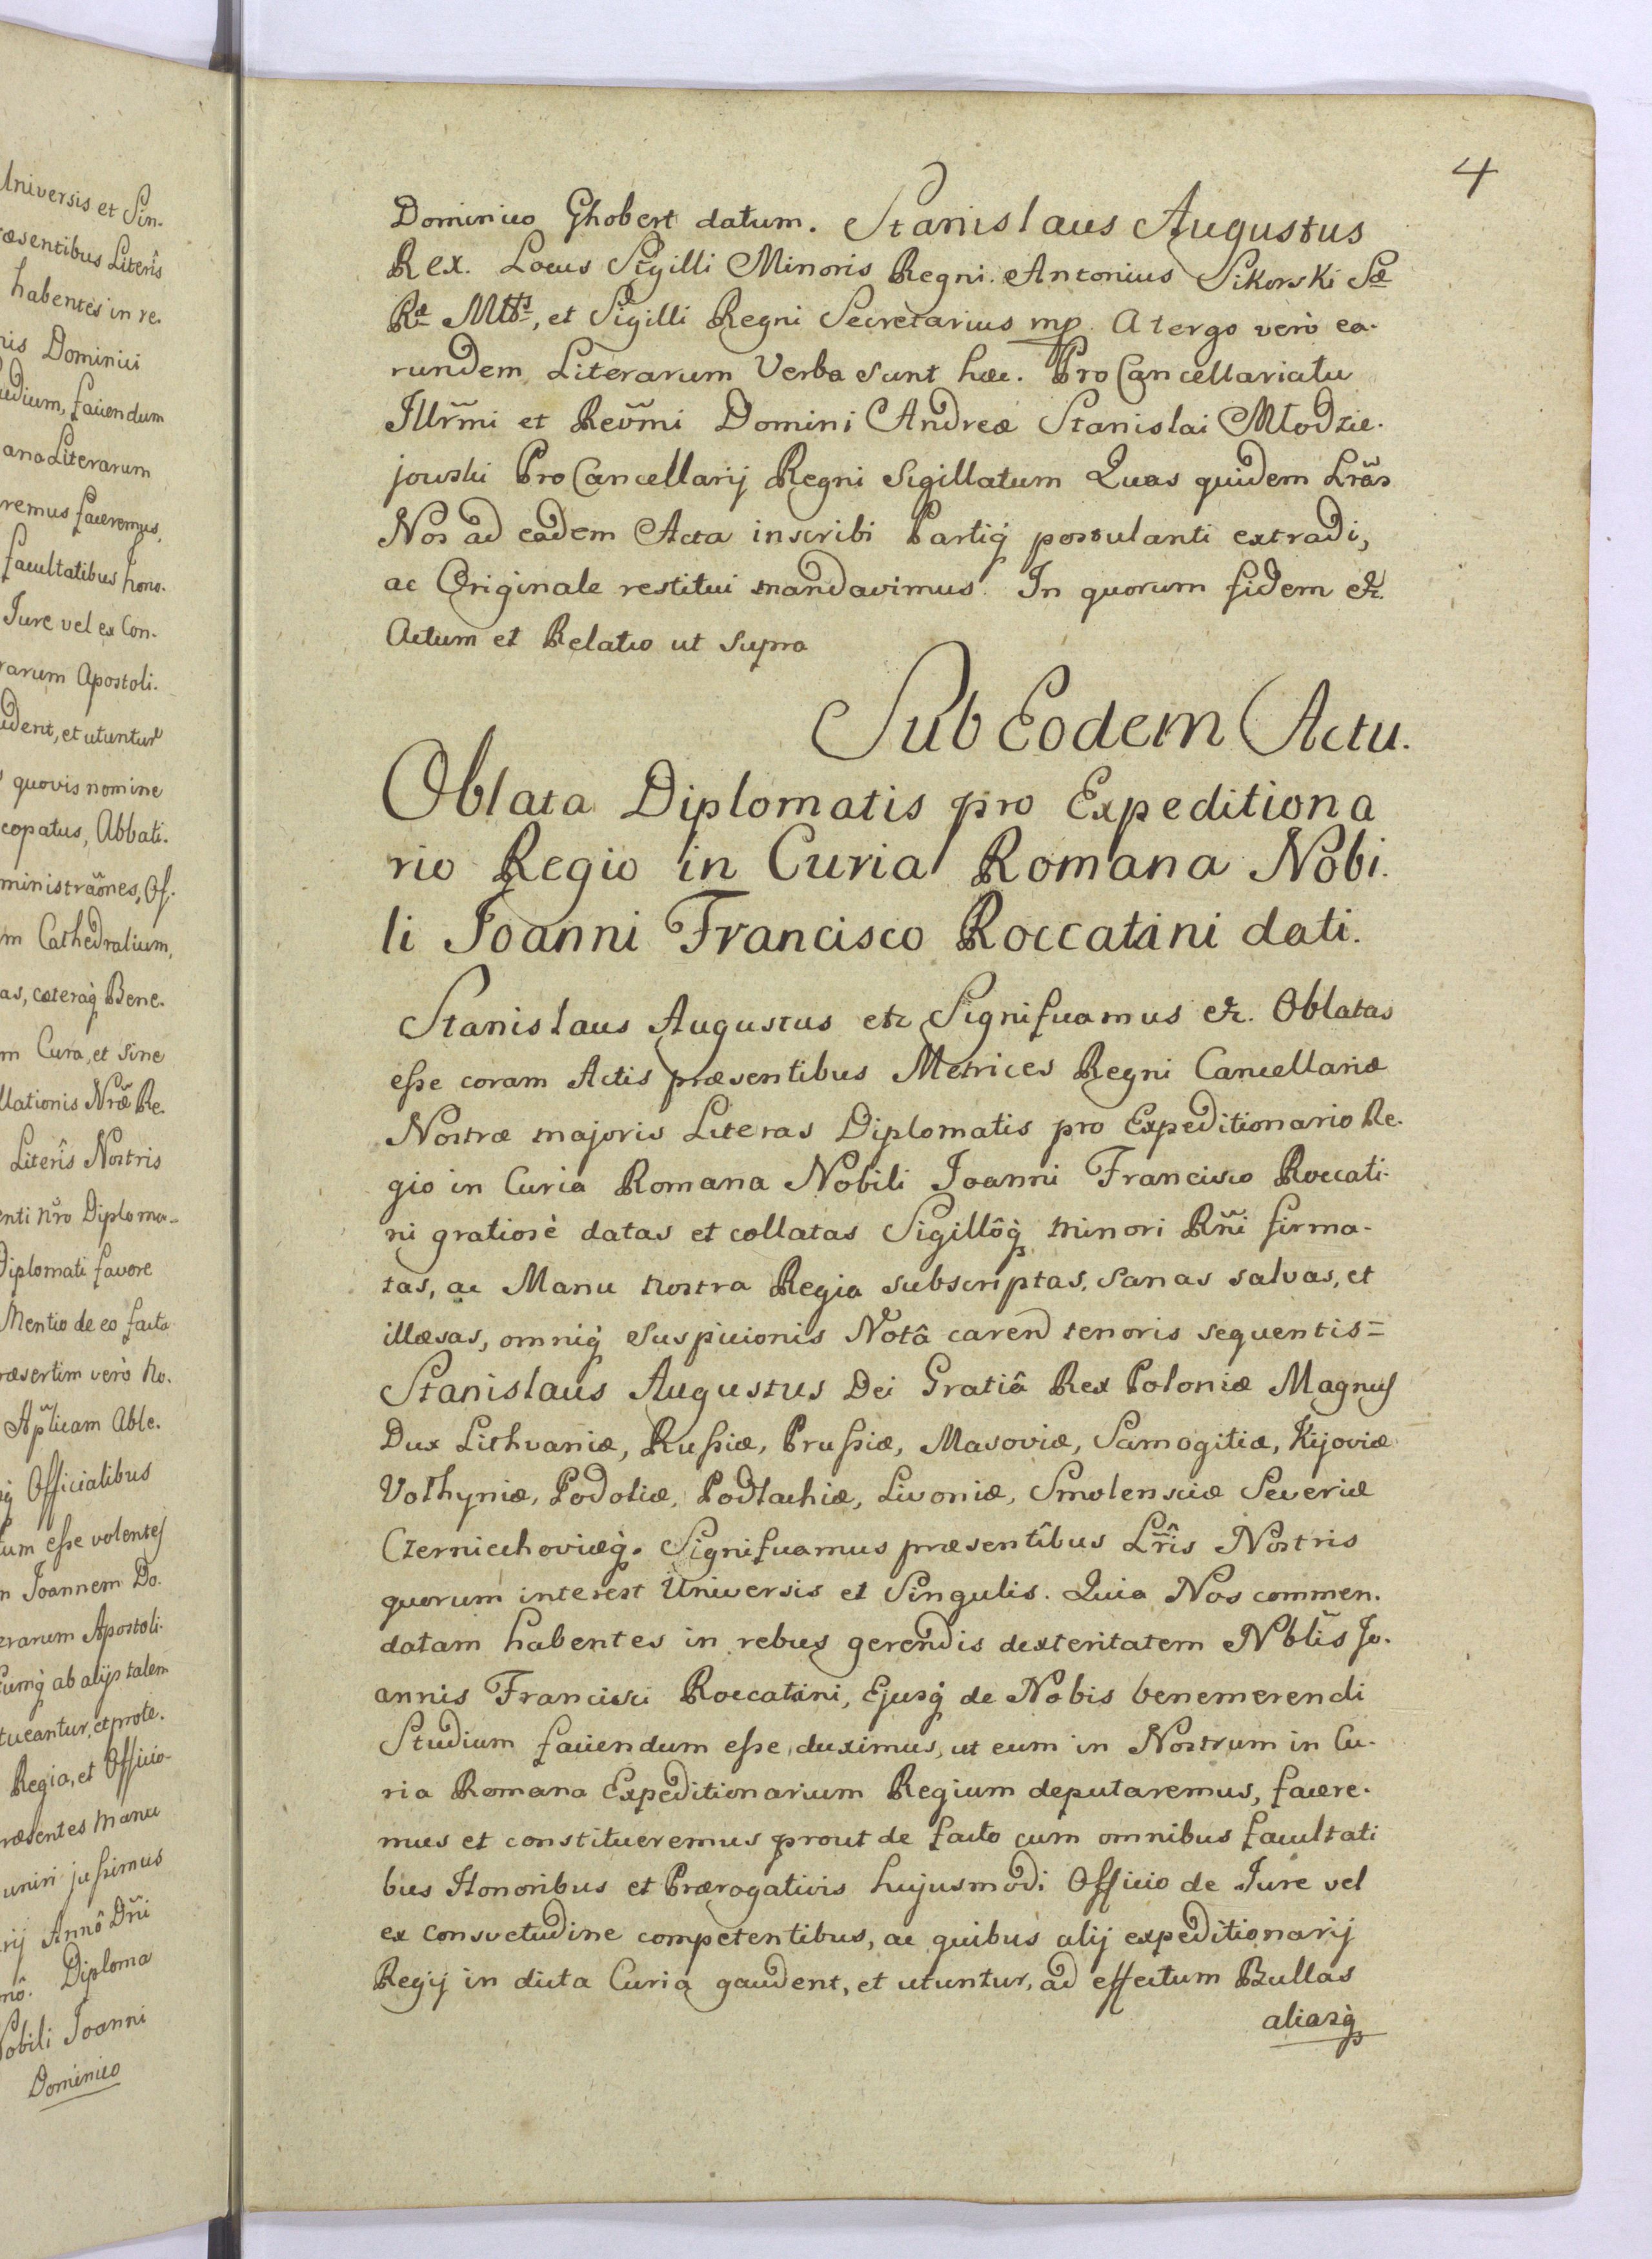 Universis et Sin-
æsentibus Literîs
habentes in re-
nis Dominici
udium, faciendum
ana Literarum
remus faceremus,
facultatibus hono-
Jure vel ex Con-
rarum Apostoli-
udent, et utuntur
quovis nomine
copatus, Abbati-
ministrãones, Of-
m Cathedralium,
as, cæterasq́ Bene-
m Cura, et sine
llationis Nræ̃ Re-
Literîs Nostris
enti nr̃o Diploma-
Diplomati favore
Mentio de eo facta
ræsertim verò No-
Ap̃licam Able-
q́ Officialibus
um eſse volentes
n Joannem Do-
erarum Apostoli-
cumq́ ab alijs talem
tueantur, et prote-
Regia, et Officio-
ræsentes manu
uniri juſsimus
rij Annô Dñi
nô. Diploma
Nobili Joanni
Dominico
4
Dominico Ghobert datum. Stanislaus Augustus
Rex. Locus Sigilli Minoris Regni. Antonius Sikorski Sæ
Ræ Mttis, et Sigilli Regni Secretarius mp. A tergo verò ea-
rundem Literarum Verba sunt hæc. Pro Cancellariatu
Illrm̃i et Revm̃i Domini Andreæ Stanislai Młodzie-
jowski Pro Cancellarij Regni Sigillatum Quas quidem Lrãs
Nos ad eadem Acta inscribi Partiq́ postulanti extradi,
ac Originale restitui mandavimus. In quorum fidem etz.
Actum et Relatio ut supra
Sub Eodem Actu.
Oblata Diplomatis pro Expeditiona
rio Regio in Curia Romana Nobi-
li Joanni Francisco Roccatani dati.
Stanislaus Augustus etz Significamus etz. Oblatas
eſse coram Actis præsentibus Metrices Regni Cancellariæ
Nostræ majoris Literas Diplomatis pro Expeditionario Re-
gio in Curia Romana Nobili Joanni Francisco Roccati-
ni gratiosè datas et collatas Sigillôq́ minori Rñi firma-
tas, ac Manu nostra Regia subscriptas, sanas salvas, et
illæsas, omniq́ suspicionis Notâ caren̄ tenoris sequentis=
Stanislaus Augustus Dei Gratiâ Rex Poloniæ Magnus
Dux Lithvaniæ, Ruſsiæ, Pruſsiæ, Masoviæ, Samogitiæ, Kijoviæ
Volhyniæ, Podoliæ, Podlachiæ, Livoniæ, Smolensciæ Severiæ
Czerniechoviæq́. Significamus præsentîbus Lr̃îs Nostris
quorum interest Universis et Singulis. Quia Nos commen-
datam habentes in rebus gerendis dexteritatem Nblĩs Jo-
annis Francisci Roccatani, Ejusq́ de Nobis benemerendi
Studium faciendum eſse duximus, ut eum in Nostrum in Cu-
ria Romana Expeditionarium Regium deputaremus, facere-
mus et constitueremus prout de facto cum omnibus facultati
bus Honoribus et Prærogativis hujusmodi Officio de Jure vel
ex consvetudine competentibus, ac quibus alij expeditionarij
Regij in dicta Curia gaudent, et utuntur, ad effectum Bullas
aliasq́